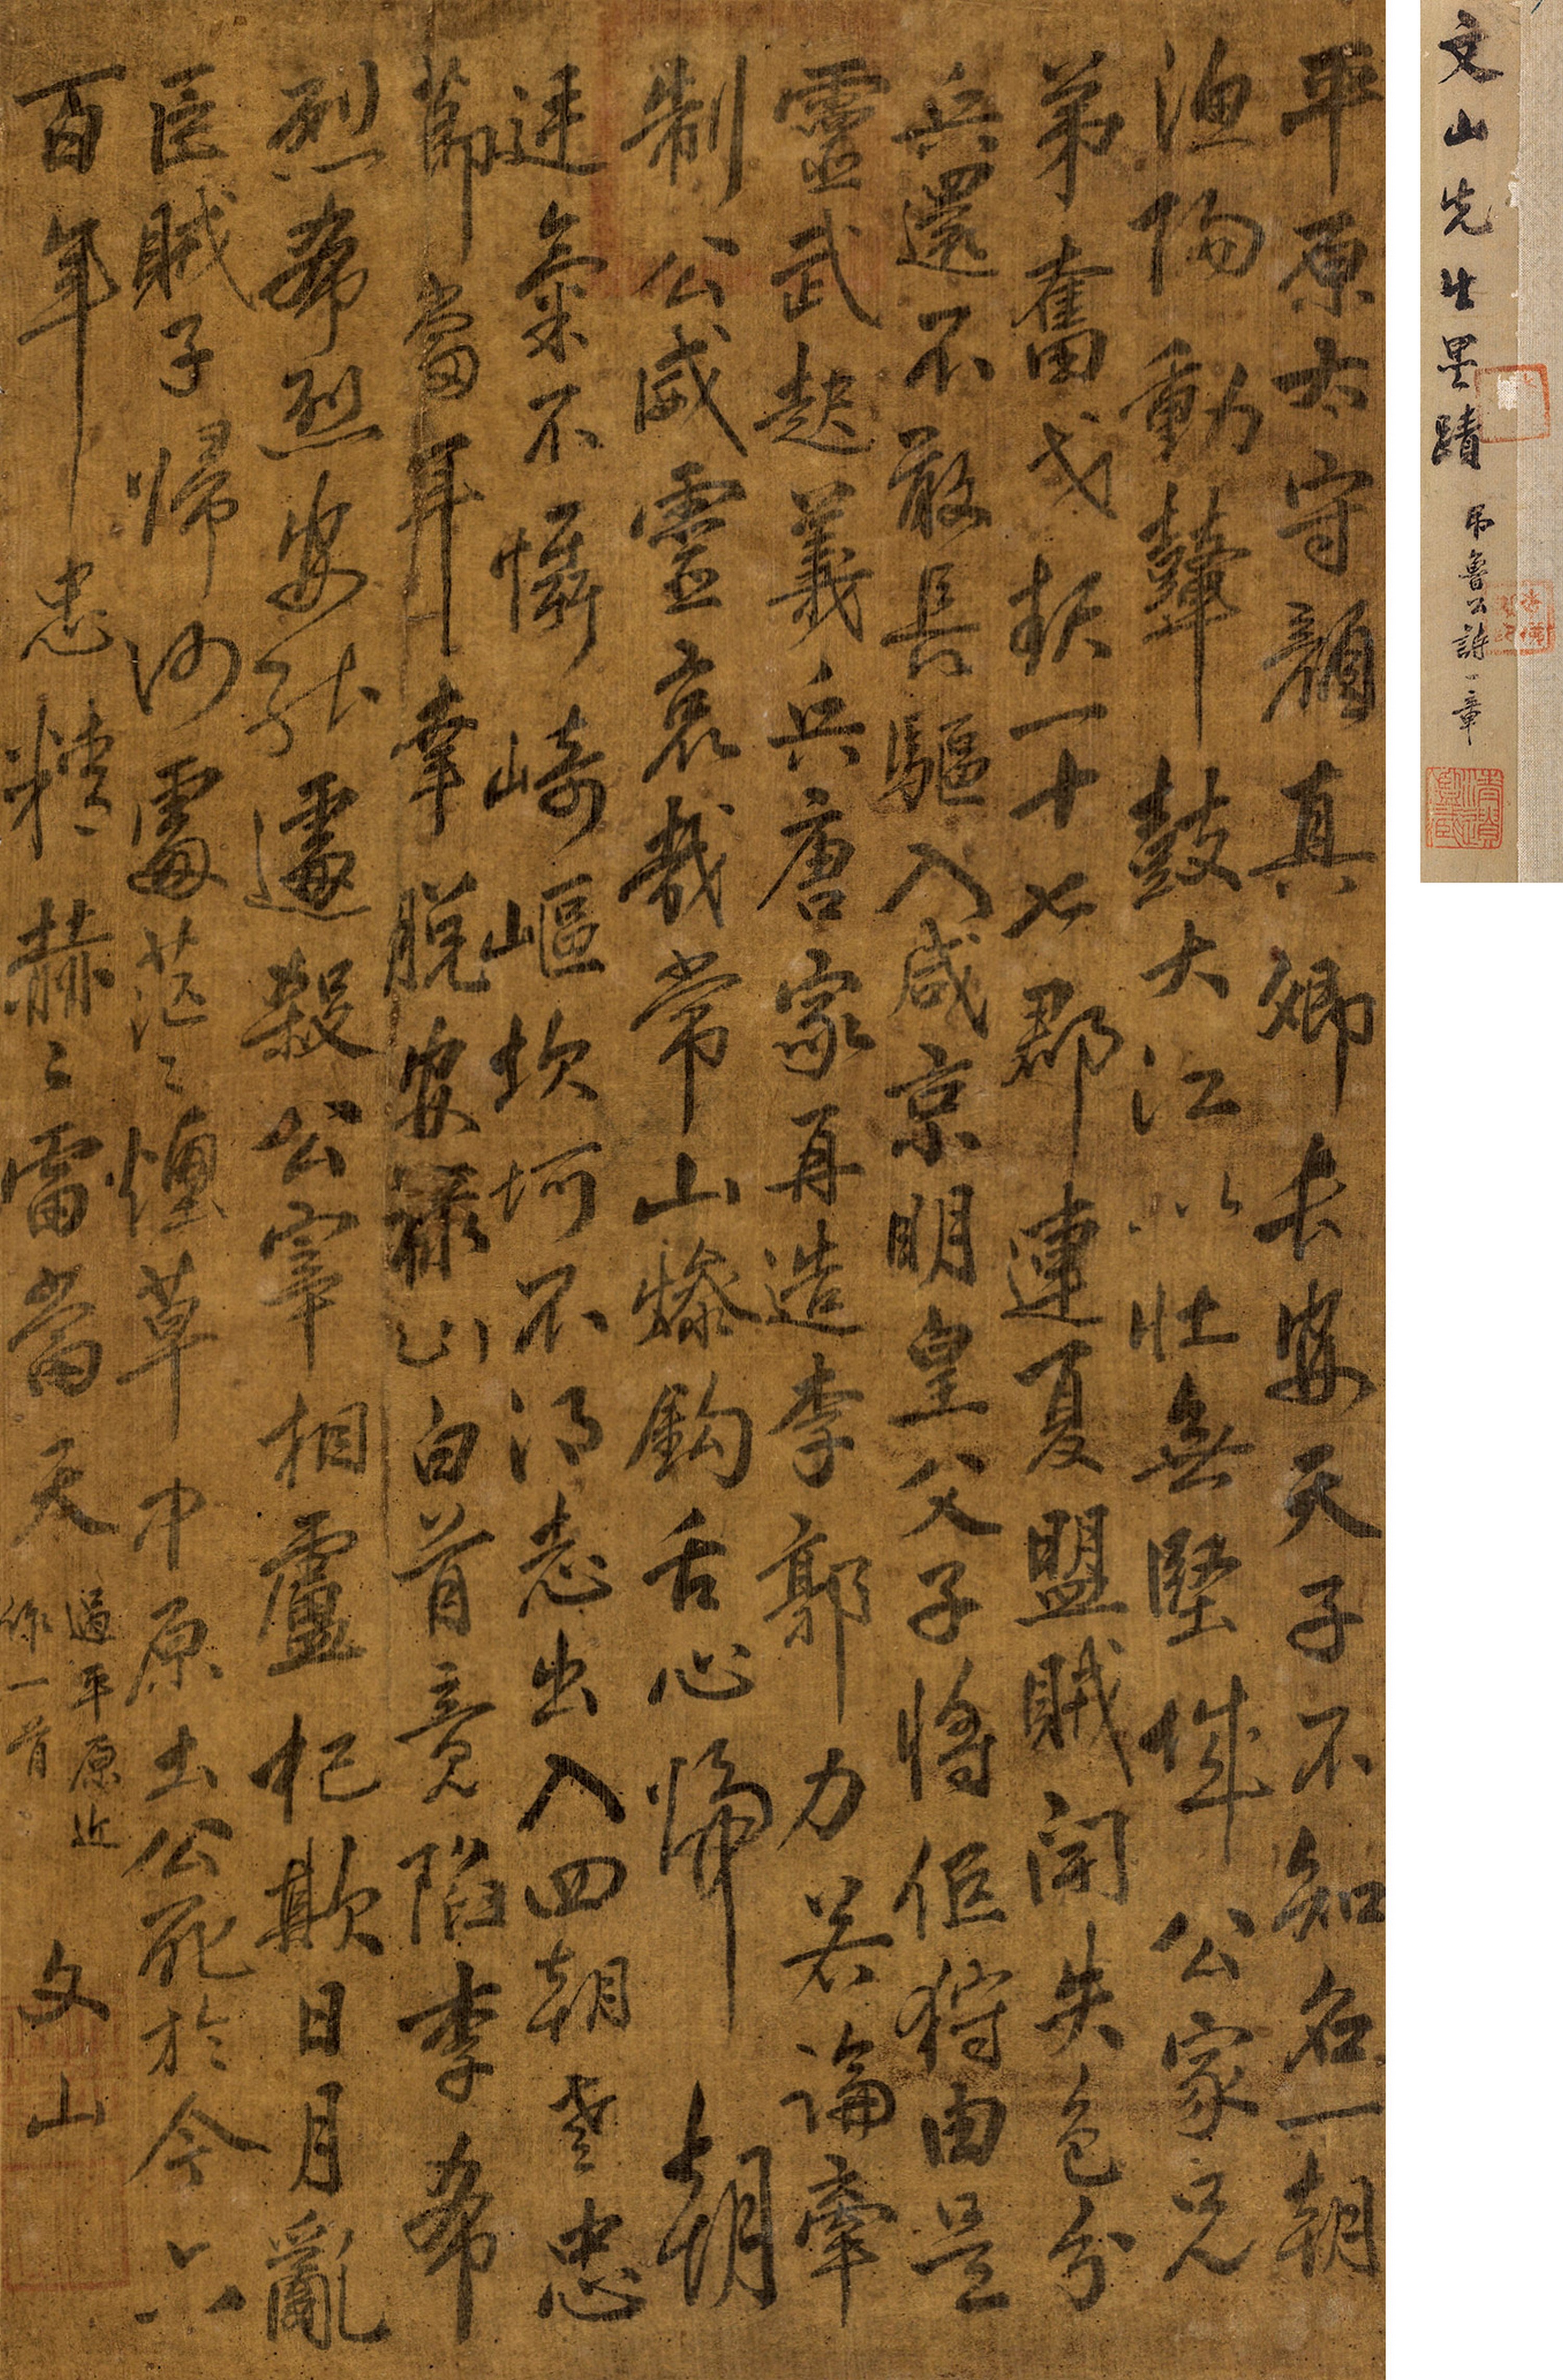 文山先生墨蹟 吊魯公詩一章
平原太守顏真卿長安天子不知名一朝
漁陽動鼙鼓大江以北無堅城公家兄
弟奮戈起一十七郡連夏盟賊聞失色分
兵還不敢長驅入咸京明皇父子將狩由是
靈武起義兵唐家再造李郭力若論牽
制公威靈哀哉常山慘鈎舌心歸朝
廷氣不懾崎嶇坎坷不得志出入四朝老忠
節當年幸脫安祿山白首竟陷李希
烈希烈安能遽殺公宰相盧杞欺日月亂
臣賊子歸何處茫〻煙草中原土公死於今六
百年忠精赫〻雷當天
過平原近
作一首
文山